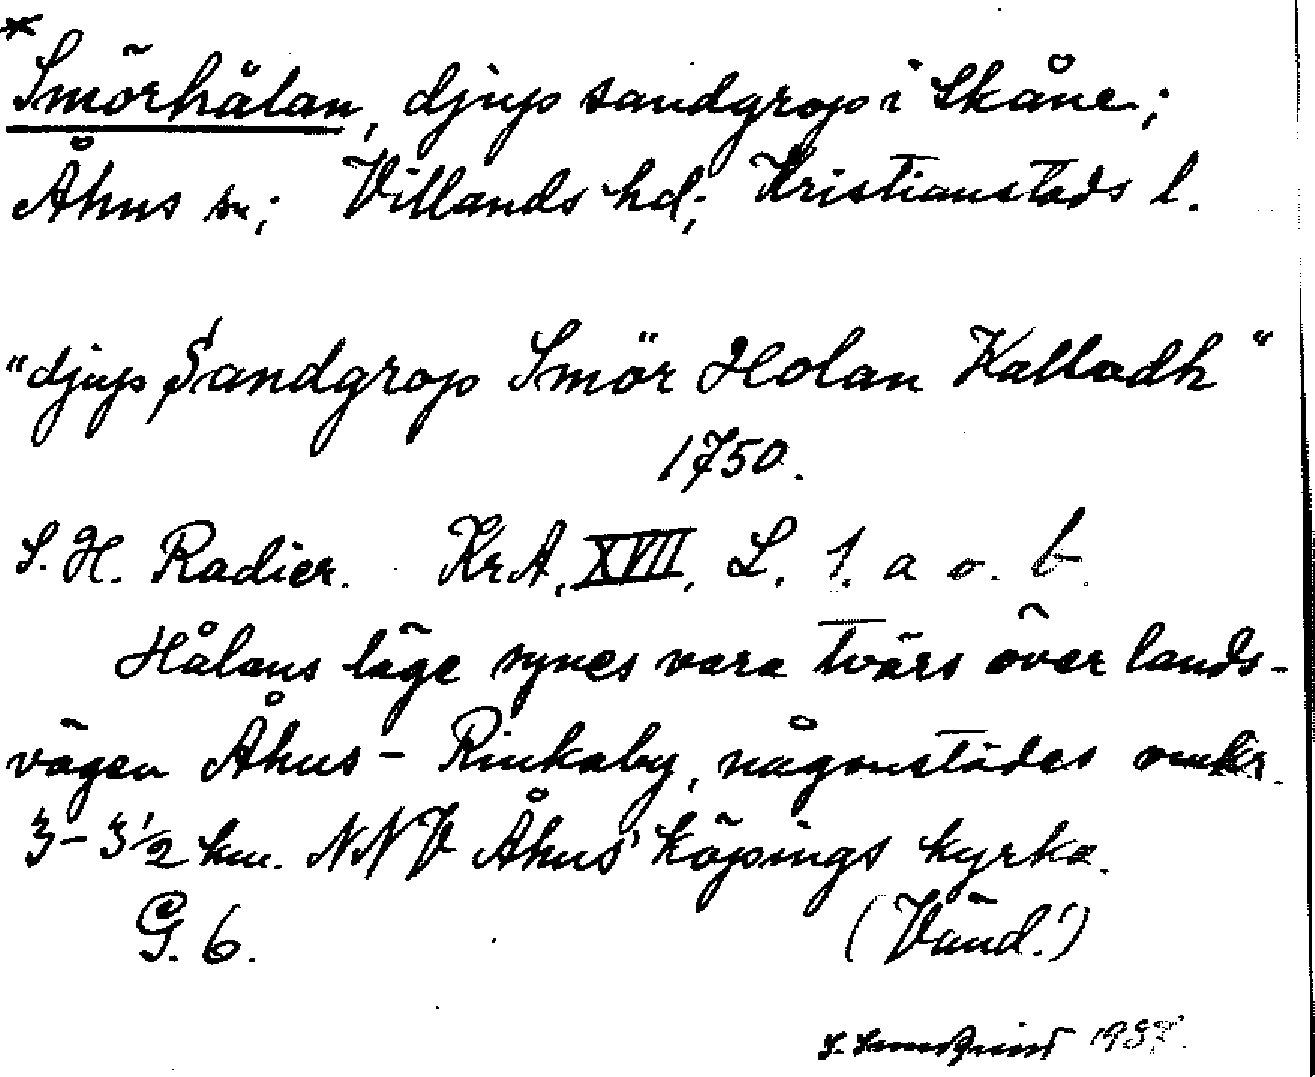 *
Smörhålan, djup sandgrop i Skåne;
Åhus sn; Villands hd; Kristianstads l.
"djup Sandgrop Smör Holan Kalladh"
1750.
S. H. Radier. KrA, XVII, L. 1. a o. b.
Hålans läge synes vara tvärs över lands-
vägen Åhus - Rinkaby, någonstädes omkr.
3 - 3 1/2 km. NNV Åhus' köpings kyrka.
G. 6. (Vänd!)
S. 1937.